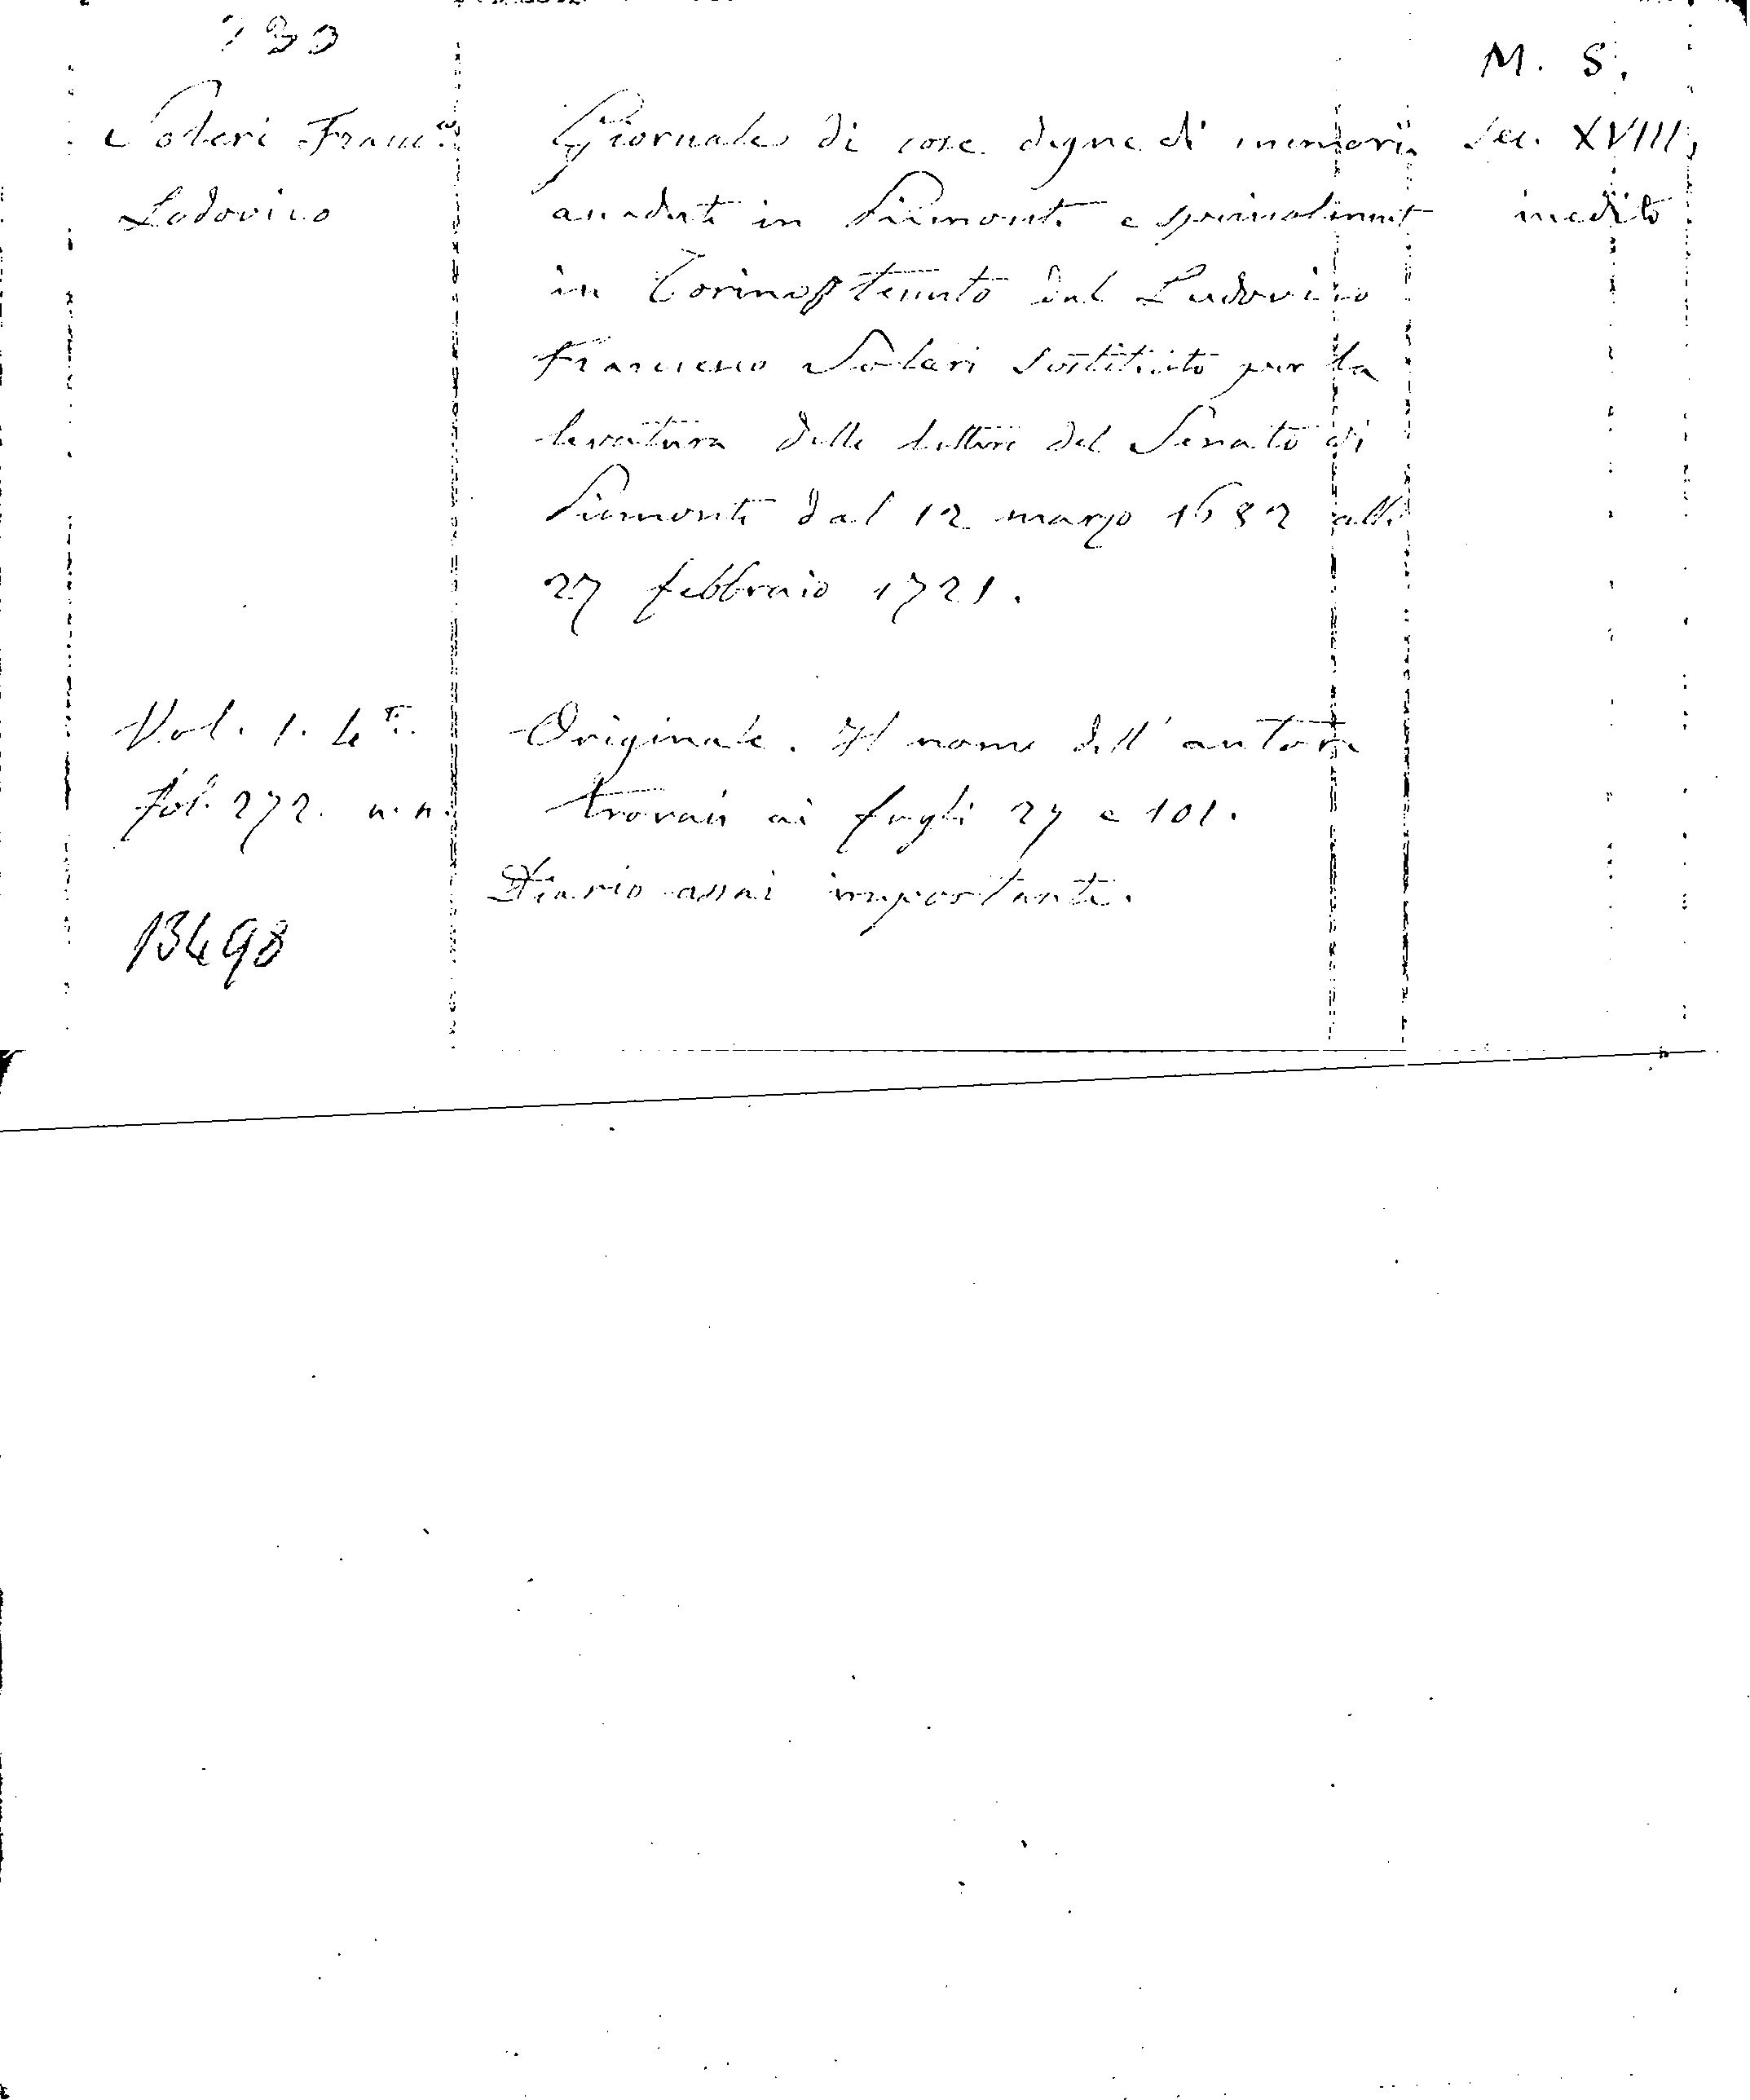 M. S.
Soleri Franc.co
Lodovico
Giornale di cose degne di memoria
accadute in Piemonte e principalmente
in Torino tenuto dal Ludovico
Francesco Soleri sostituito per la
levatura delle lettere del Senato di
Piemonte dal 12 marzo 1682 alli
27 febbraio 1721.
Sec. XVIII,
inedito
Vol. 1. 4to.
fol. 272. n. n.
Originale. Il nome dell' autore
trovasi ai fogli 27 e 101.
Diario assai importante.
13498